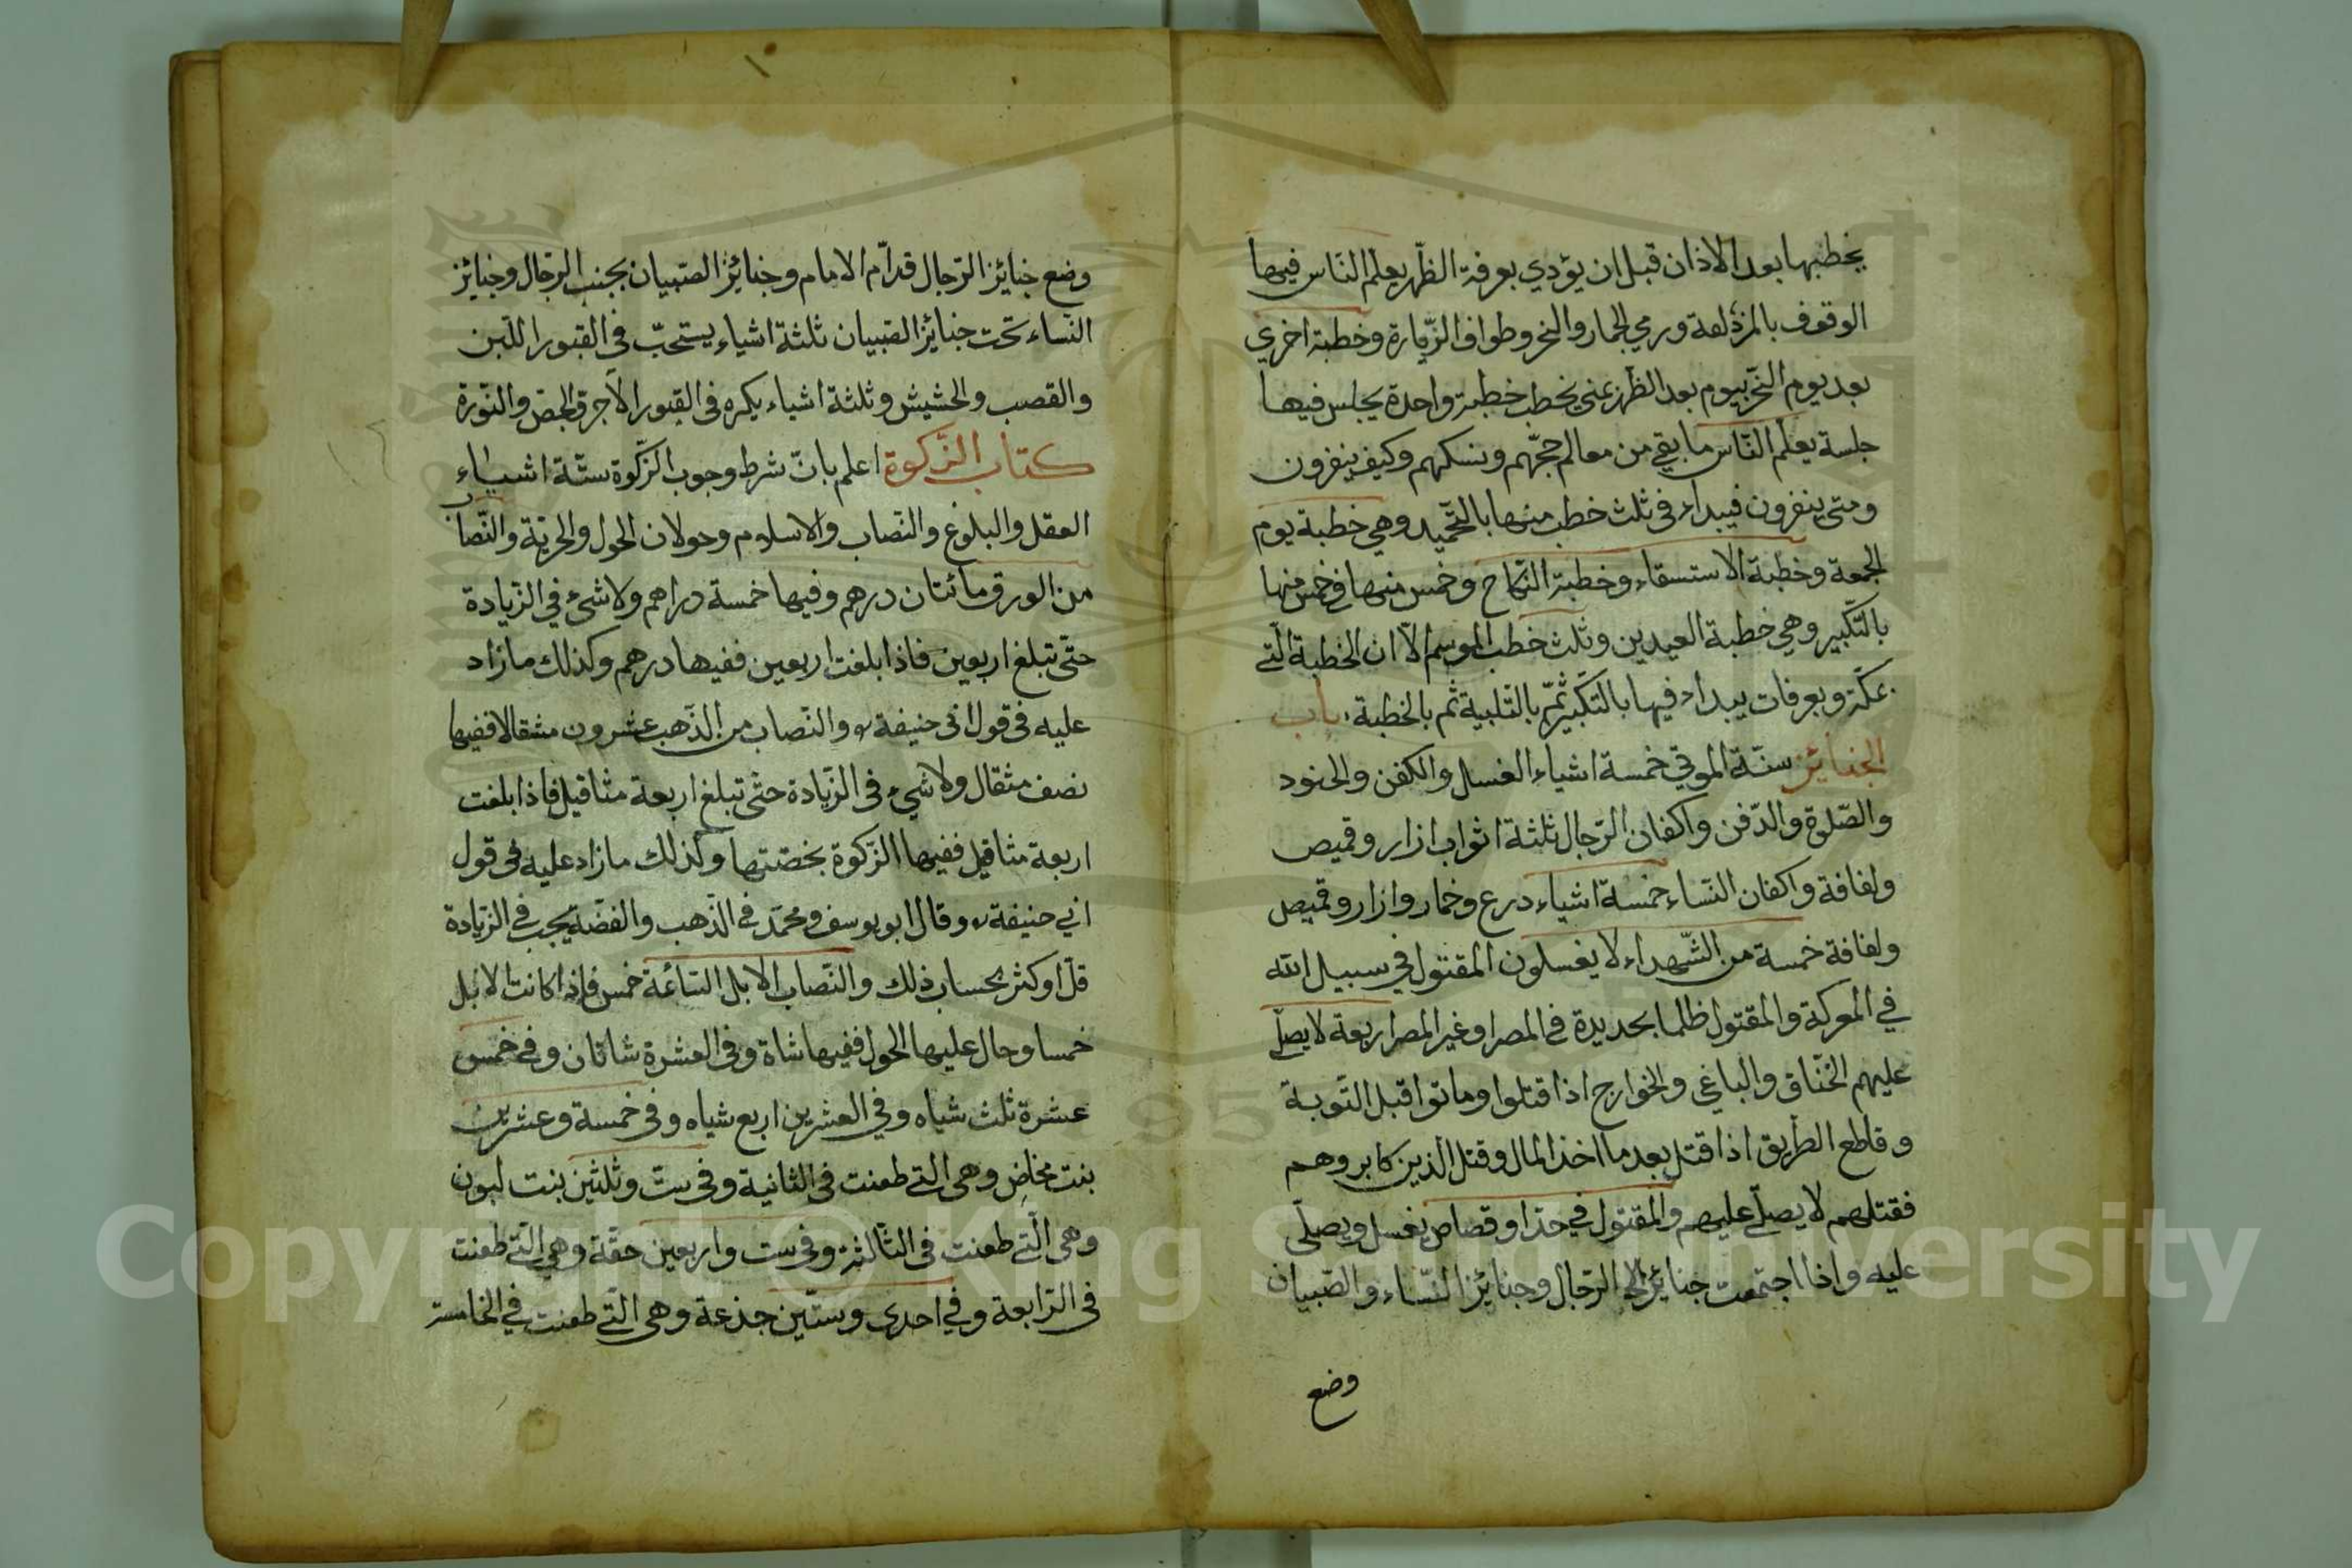 يخطبها بعد الاذان قبل ان يؤدي بعرفة الظّهر يعلم النّاس فيها
الوقوف بالمزدلفة ورمي الجمار والنحر وطواف الزّيارة وخطبة اخري
بعد يوم النحر بيوم بعد الظهر بمني يخطب خطبة واحدة يجلس فيها
جلسة يعلم النّاس ما بقي من معالم حجّهم ونسكهم وكيف ينفرون
ومتى ينفرون فيبداء في ثلث خطب منها بالتحّميد وهي خطبة يوم
الجمعة وخطبة الاستسقاء وخطبة النكاح وخمس منها في خمس منها
بالتّكبير وهي خطبة العيدين وثلث خطب الموسم الاّ ان الخطبة الّتي
بمكّة وبعرفات يبداء فيها بالتّكبير ثمّ بالتلبية ثم بالخطبة باب
الجنائز سنّة الموتي خمسة اشياء الغسل والكفن والحنود
والصّلوة والدّفن واكفان الرّجال ثلثة اثواب ازار وقميص
ولفافة واكفان النّساء خمسة اشياء درع وخمار وازار وقميص
ولفافة خمسة من الشّهداء لا يغسلون المقتول في سبيل الله
في المعركة والمقتول ظلما بحديدة في المصر او غير المصر اربعة لا يصلّي
عليهم الخنّاق والباغي والخوارج اذا قتلوا وماتوا قبل التّوبة
وقاطع الطّريق اذا قتل بعد ما اخذ المال وقتل الّذين كابروهم
فقتلهم لا يصلّي عليهم والمقتول في حدّ او قصاص يغسل ويصلّى
عليه واذا اجتمعت جنائز الرّجال وجنائز النّساء والصّبيان
وضع
وضع جنائز الرّجال قدّام الامام وجنائز الصّبيان بجنب الرّجال وجنائز
النّساء تحت جنائز الصّبيان ثلثة اشياء يستحبّ في القبور اللّبن
والقصب والحشيش وثلثة اشياء يكره في القبور الآجر والجص والنّورة
كتاب الزّكوة اعلم بانّ شرط وجوب الزّكوة ستّة اشياء
العقل والبلوغ والنّصاب والاسلام وحولان الحول والحريّة والنّصاب
من الورق مائتان درهم وفيها خمسة دراهم ولا شئ في الزّيادة
حتّى تبلغ اربعين فاذا بلغت اربعين ففيها درهم وكذلك ما زاد
عليه في قول ابي حنيفة والنّصاب من الذّهب عشرون مثقالا ففيها
نصف مثقال ولا شيء في الزّيادة حتّى تبلغ اربعة مثاقيل فاذا بلغت
اربعة مثاقيل ففيها الزّكوة بحصّتها وكذلك ما زاد عليه في قول
ابي حنيفة وقال ابو يوسف ومحمّد في الذّهب والفضّة يجب في الزّيادة
قلّ او كثر بحساب ذلك والنّصاب الابل السّائمة خمس فاذا كانت الابل
خمسا وحال عليها الحول ففيها شاة وفي العشرة شاتان وفي خمس
عشرة ثلث شياه وفي العشرين اربع شياه وفي خمسة وعشرين
بنت مخاض وهي التي طعنت في الثانية وفي ستّ وثلثين بنت لبون
وهى الّتي طعنت في الثّالثة وفي ست واربعين حقّة وهي الّتي طعنت
في الرّابعة وفي احدى وستّين جذعة وهى الّتي طعنت في الخامسة
Copyright © King Saud University